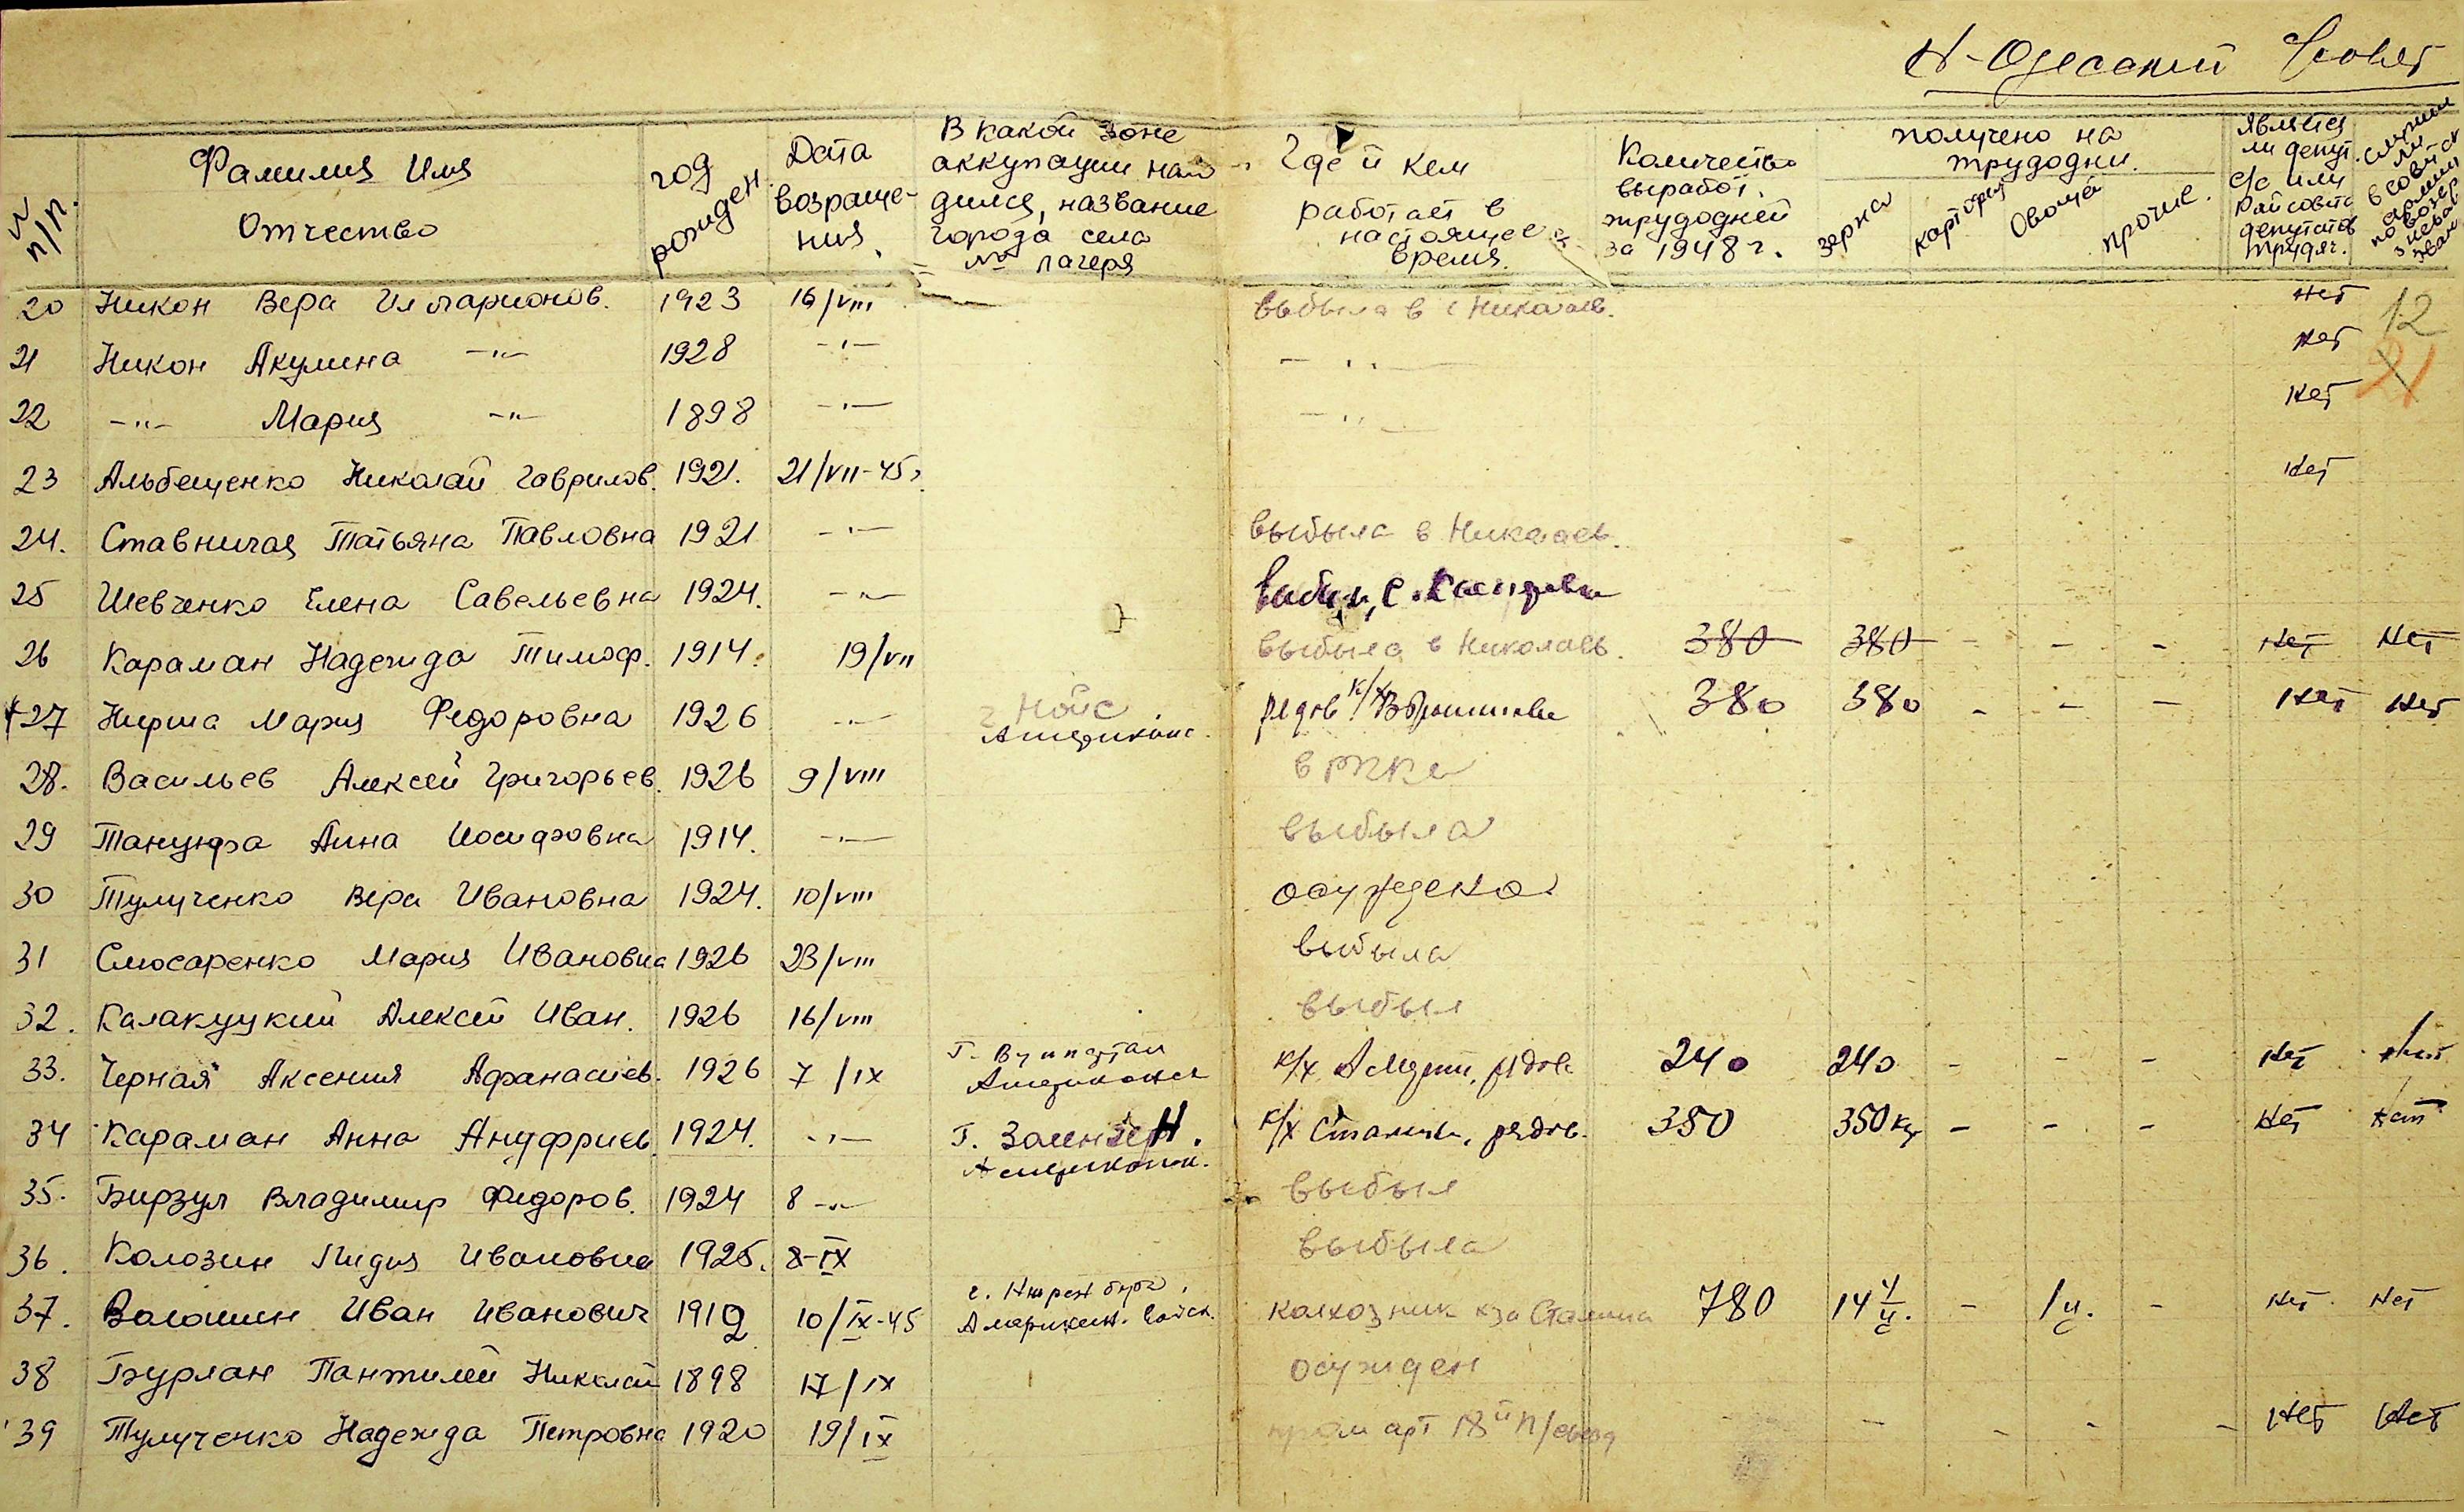 Н-Одесский Совет
№ п/п.
Фамилия Имя Отчество
год рожден.
Дата возраще-ния.
В какой зоне
аккупации нахо-
дился, название
города села
№ лагеря
Где и кем
работает в
настоящее
время.
Количество
выработ.
трудодней
за 1948 г.
получено на
трудодни.
зерна картофел Овоща прочие.
являетс
ли депут.
с/с или
Райсовета
депутатов
трудящ.
служил
ли
в совет
армии
по возвр
20 Никон Вера Илларионов. 1923 16/VIII выбыла в г Николаев. нет 12
21 Никон Акулина -"- 1928 -"- -"- нет 21
22 -"- Мария -"- 1898 -"- -"- нет
23 Альбещенко Николай Гаврилов. 1921. 21/VII-45г нет
24. Ставничая Татьяна Павловна 1921 -"- выбыла в Николаев.
25 Шевченко Елена Савельевна 1924. -"- с.
26 Караман Надежда Тимоф. 1914. 19/VII выбыла в Николаев. 380 380 - - - нет нет
27 Нирша Мария Федоровна 1926 -"- г Нойс Американс. рядов к/х Ворошилова 380 380 - - - нет нет
28. Васильев Алексей Григорьев. 1926 9/VIII в РККа
29 Танцюра Анна Иосифовна 1914. -"- выбыла
30 Тулученко Вера Ивановна 1924. 10/VIII осуждена
31 Слюсаренко Мария Ивановна 1926 23/VIII выбыла
32. Калакуцкий Алексей Иван. 1926 16/VIII выбыл
33. Черная Аксения Афанасиев. 1926 7/IX г. Вуппертал Американск к/х рядов. 240 240 - - - нет нет
34 Караман Анна Ануфриев. 1924. -"- г. Американск. к/х Сталина, рядов. 350 350 кг - - - нет нет
35. Бирзул Владимир Федоров. 1924 8 -"- выбыл
36. Колозин Лидия Ивановна 1925. 8-IX выбыла
37. Волошин Иван Иванович 1912 10/IX-45 г. Нюренберг, Американ. войск. колхозник к за Сталина 780 14 ц. - 1 ц. - нет нет
38 Бурлан Пантилей Николай 1898 17/IX осужден
39 Тулученко Надежда Петровна 1920 19/IX пром арт 18й п/съезд - - - - нет нет